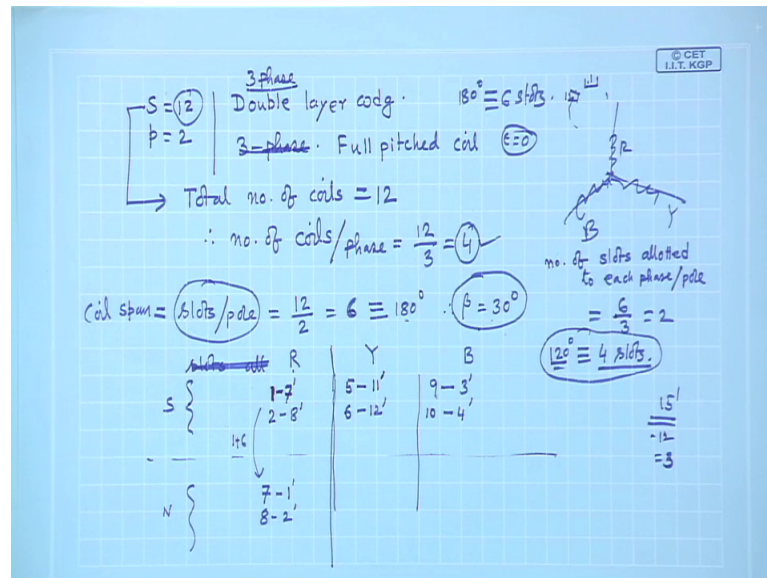 © CET
I.I.T. KGP
3 phase
S = 12 | Double layer wdg. 180° ≡ 6 slots.
p = 2 | 3-phase. Full pitched coil ε=0
R
B
Y
Total no. of coils = 12
∴ no. of coils/phase = 12/3 = 4
no. of slots allotted
to each phase/pole
= 6/3 = 2
Coil span = slots/pole = 12/2 = 6 ≡ 180° ∴ β = 30°
120° ≡ 4 slots.
R Y B
S { 1-7' 5-11' 9-3'
2-8' 6-12' 10-4'
15'
-12
=3
1+6
N { 7-1'
8-2'